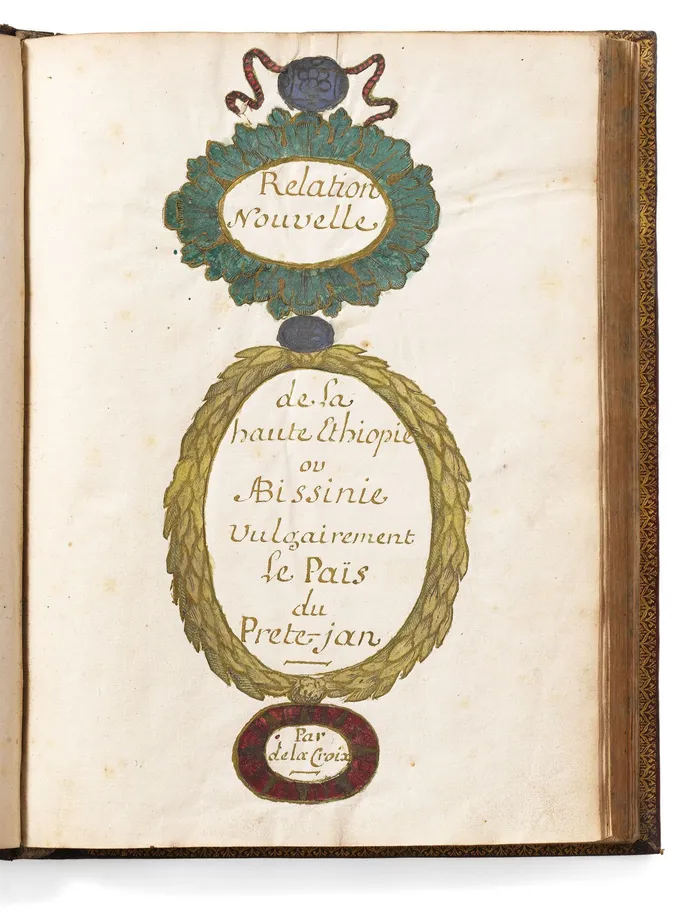 Relation
Nouvelle
de la
haute Ethiopie
ou
ABissinie
Vulgairement
Le Païs
du
Prete-jan
Par
de la Croix